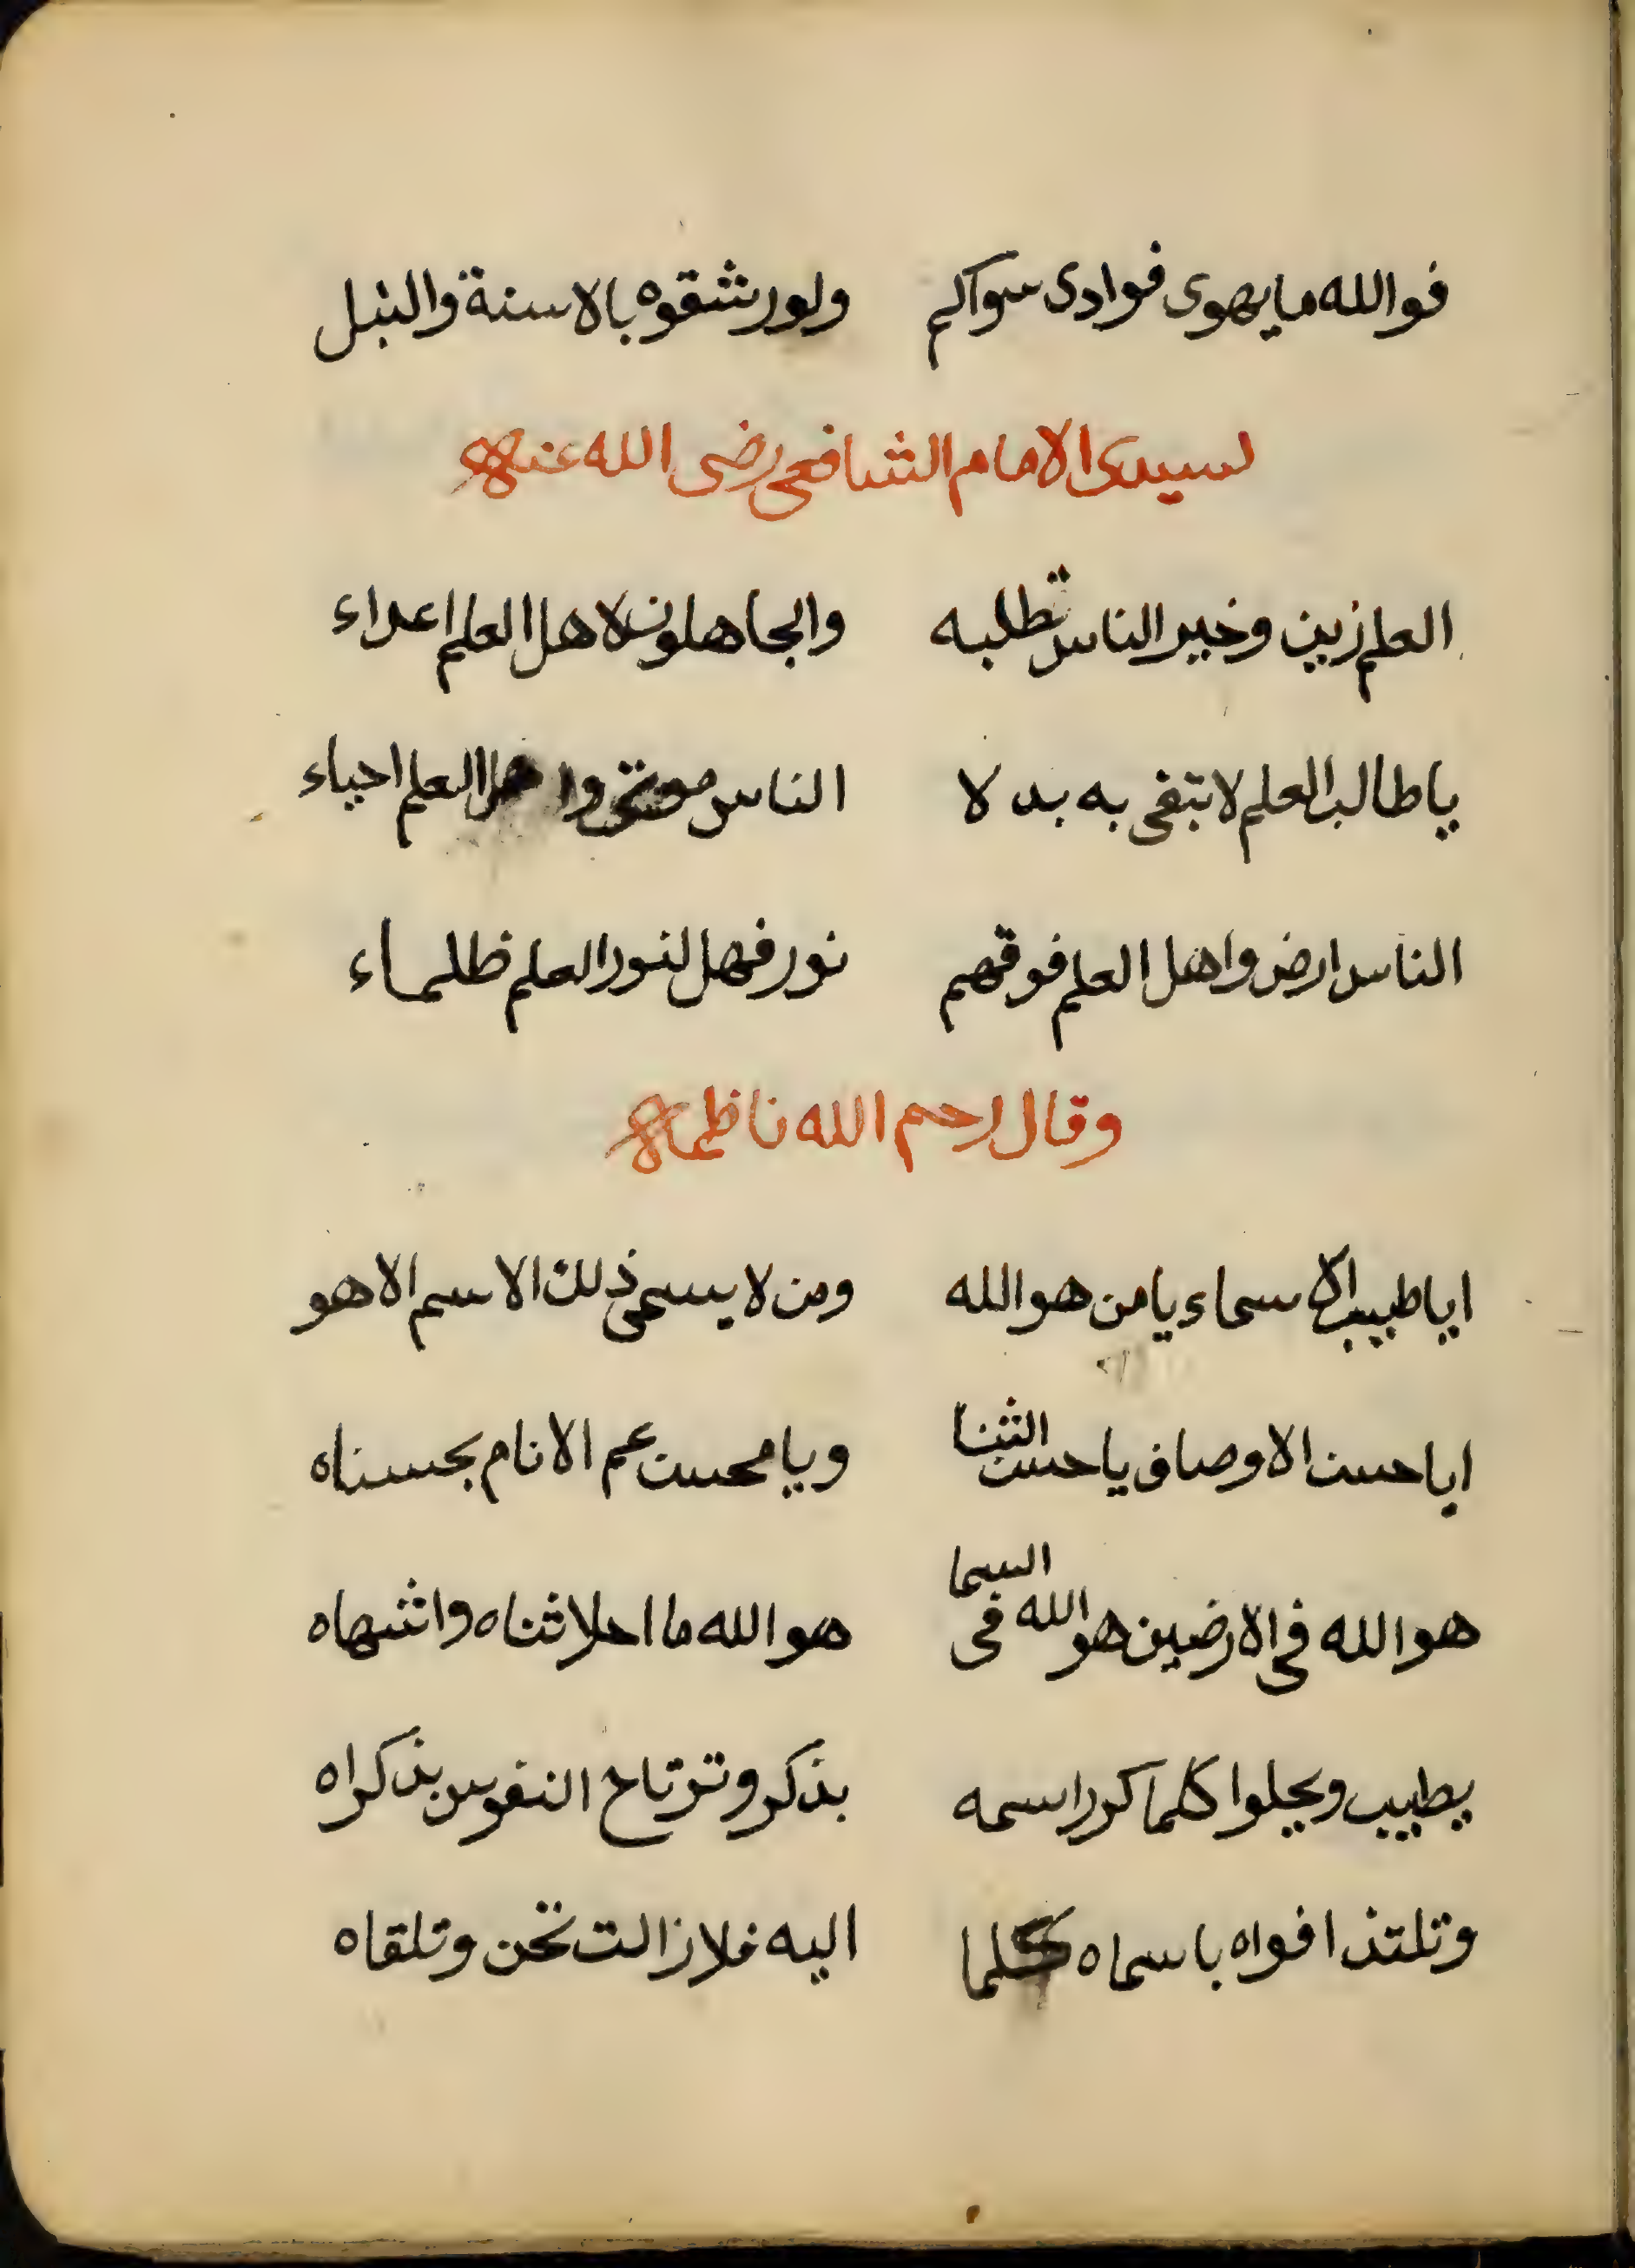 فوالله ما يهوى فوادى سواكم ولو رشقوه بالاسنة والنبل
لسيدى الامام الشافعى رضى الله عنه
العلم زين وخير الناس تطلبه والجاهلون لاهل العلم اعداء
يا طالب العلم لا تبتغى به بدلا الناس موتى واهل العلم احياء
الناس ارض واهل العلم فوقهم نور فهل لنور العلم ظلماء
وقال رحم الله ناظمها
ايا طيب الاسماء يا من هو الله ومن لا يسمى ذلك الاسم الا هو
ايا حسن الاوصاف يا حسن الثنا ويا محسن عم الانام بحسناه
هو الله فى الارضين هو الله فى السما هو الله ما احلا ثناه واشهاه
يطيب ويحلوا كلما كرر اسمه بذكر وترتاح النفوس بذكراه
وتلتذ افواه باسماه كلما اليه فلا زالت تحن وتلقاه